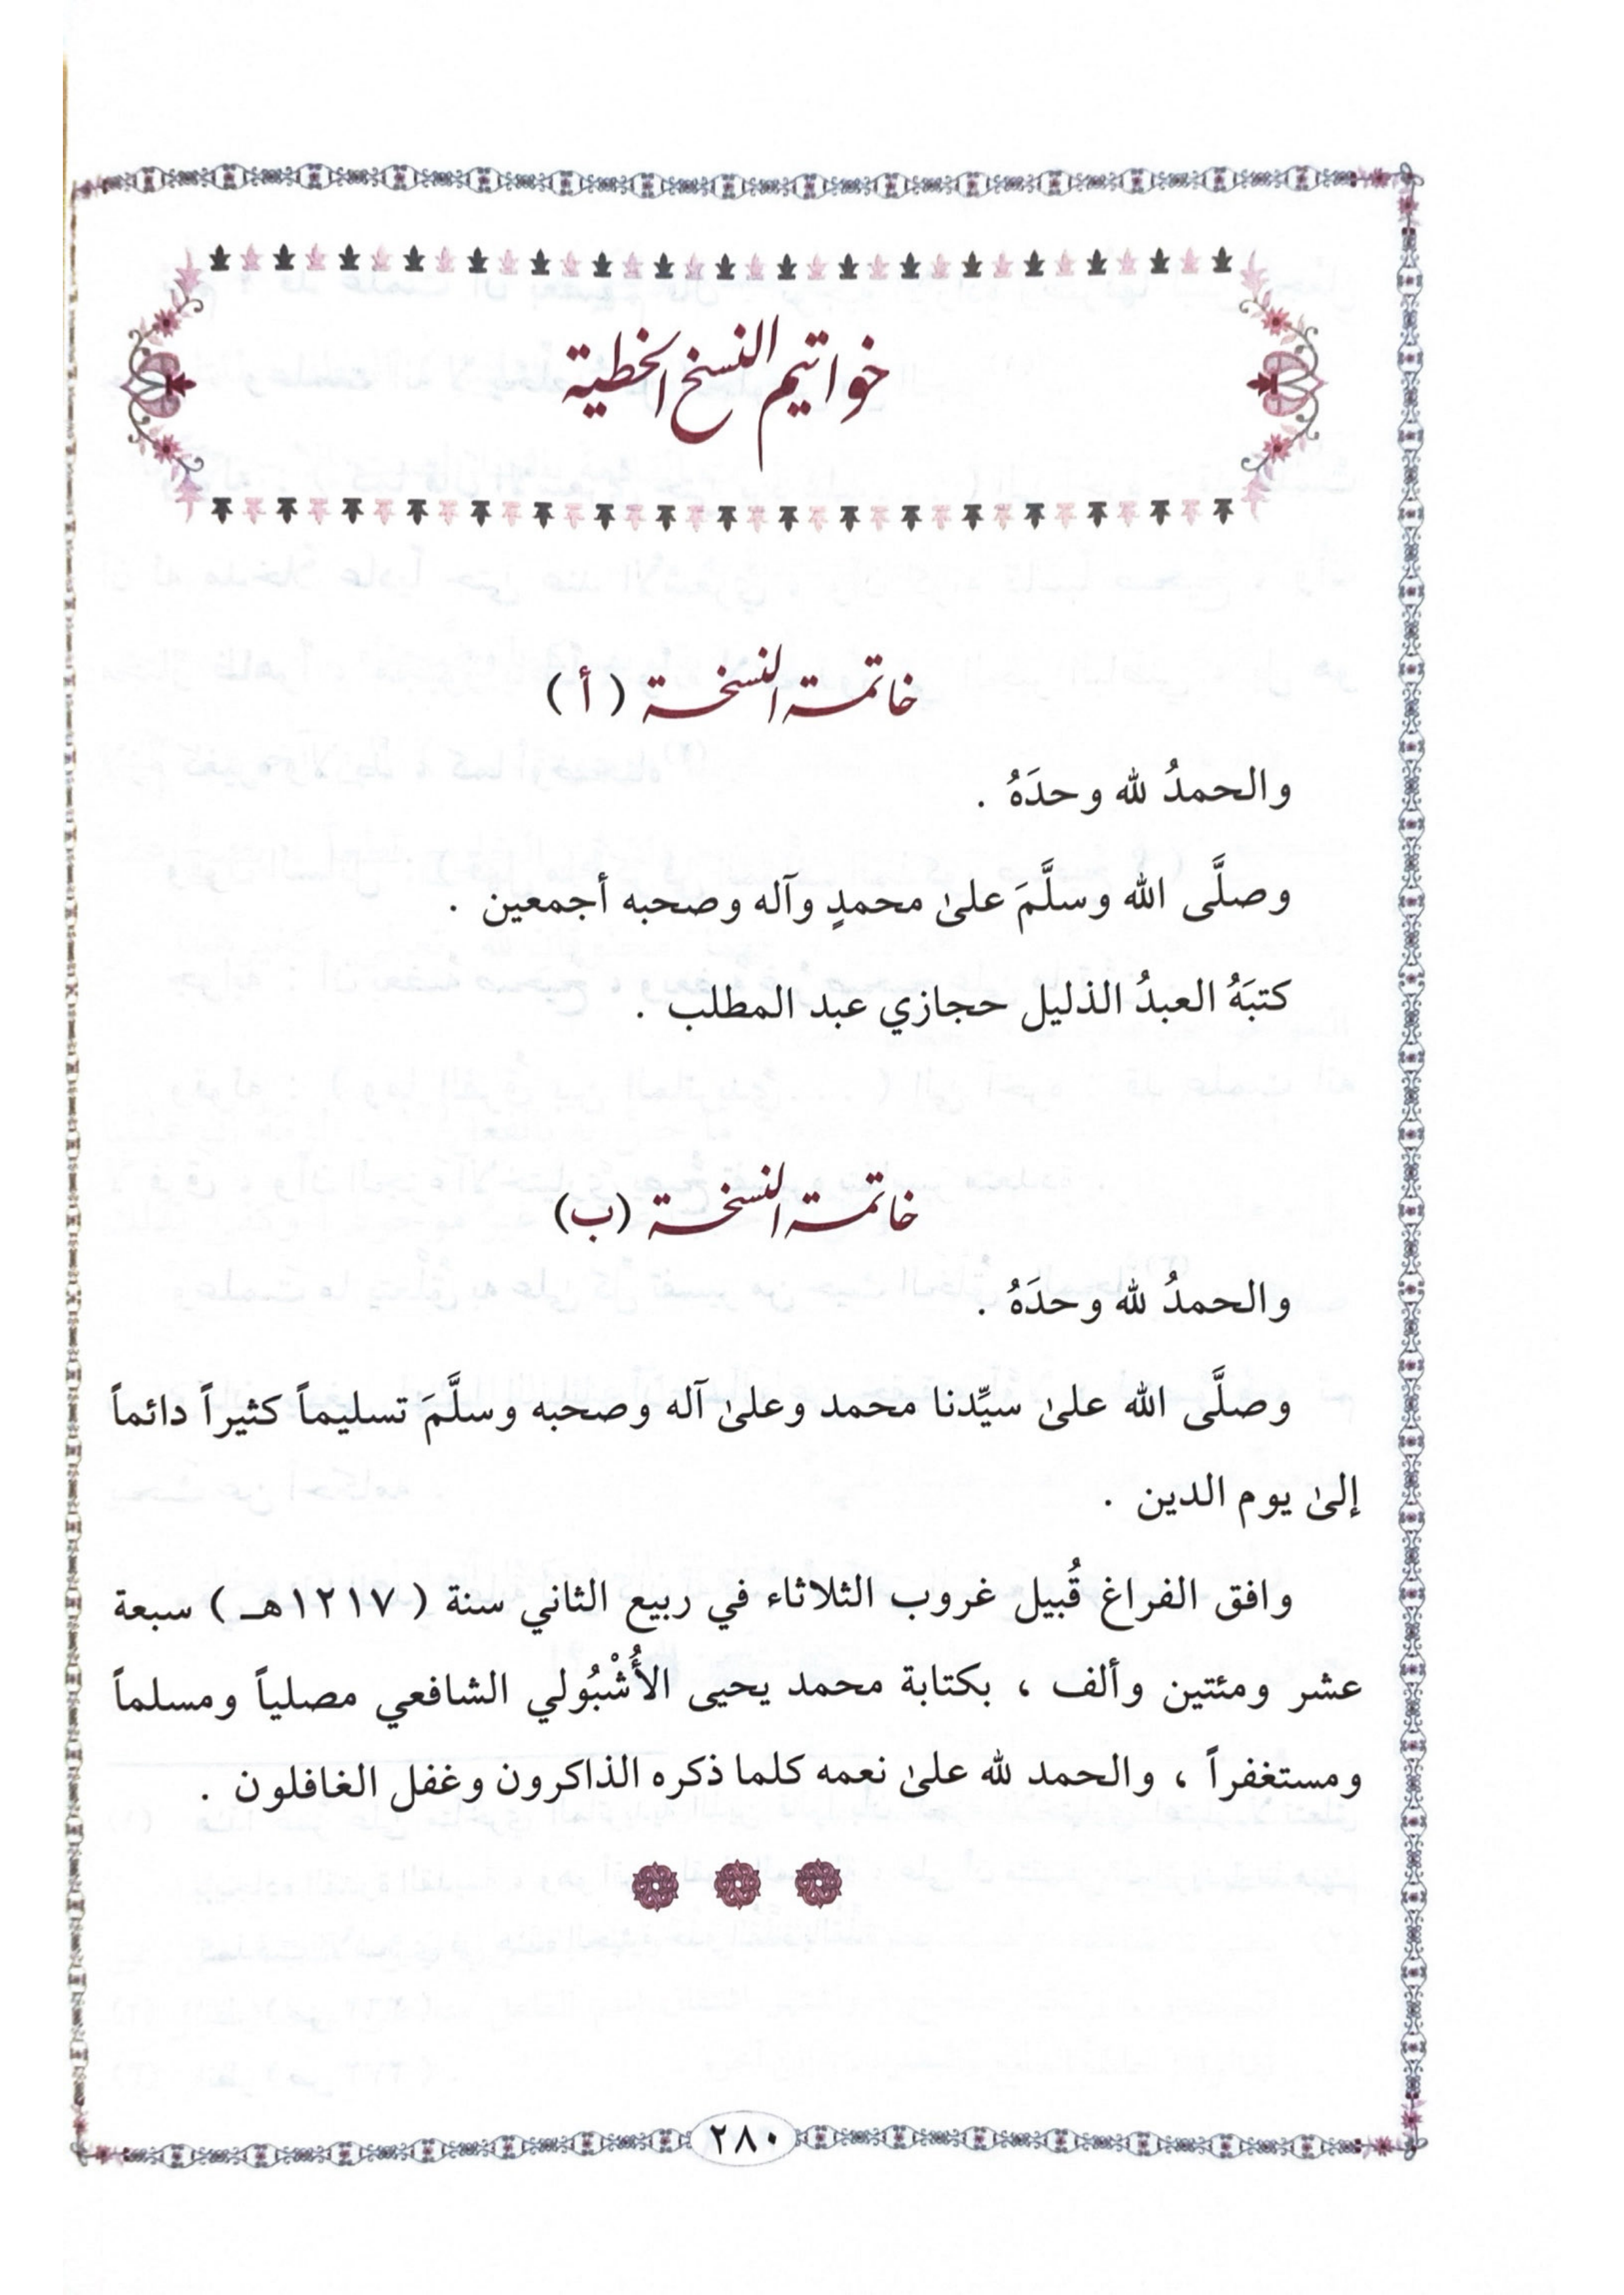 خواتيم النسخ الخطية
خاتمة النسخة ( أ )
والحمدُ لله وحدَهُ .
وصلَّى الله وسلَّمَ علىٰ محمدٍ وآله وصحبه أجمعين .
كتبَهُ العبدُ الذليل حجازي عبد المطلب .
خاتمة النسخة (ب)
والحمدُ لله وحدَهُ .
وصلَّى الله علىٰ سيِّدنا محمد وعلىٰ آله وصحبه وسلَّمَ تسليماً كثيراً دائماً
إلىٰ يوم الدين .
وافق الفراغ قُبيل غروب الثلاثاء في ربيع الثاني سنة ( ١٢١٧هـ ) سبعة
عشر ومئتين وألف ، بكتابة محمد يحيى الأُشْبُولي الشافعي مصلياً ومسلماً
ومستغفراً ، والحمد لله علىٰ نعمه كلما ذكره الذاكرون وغفل الغافلون .
٢٨٠